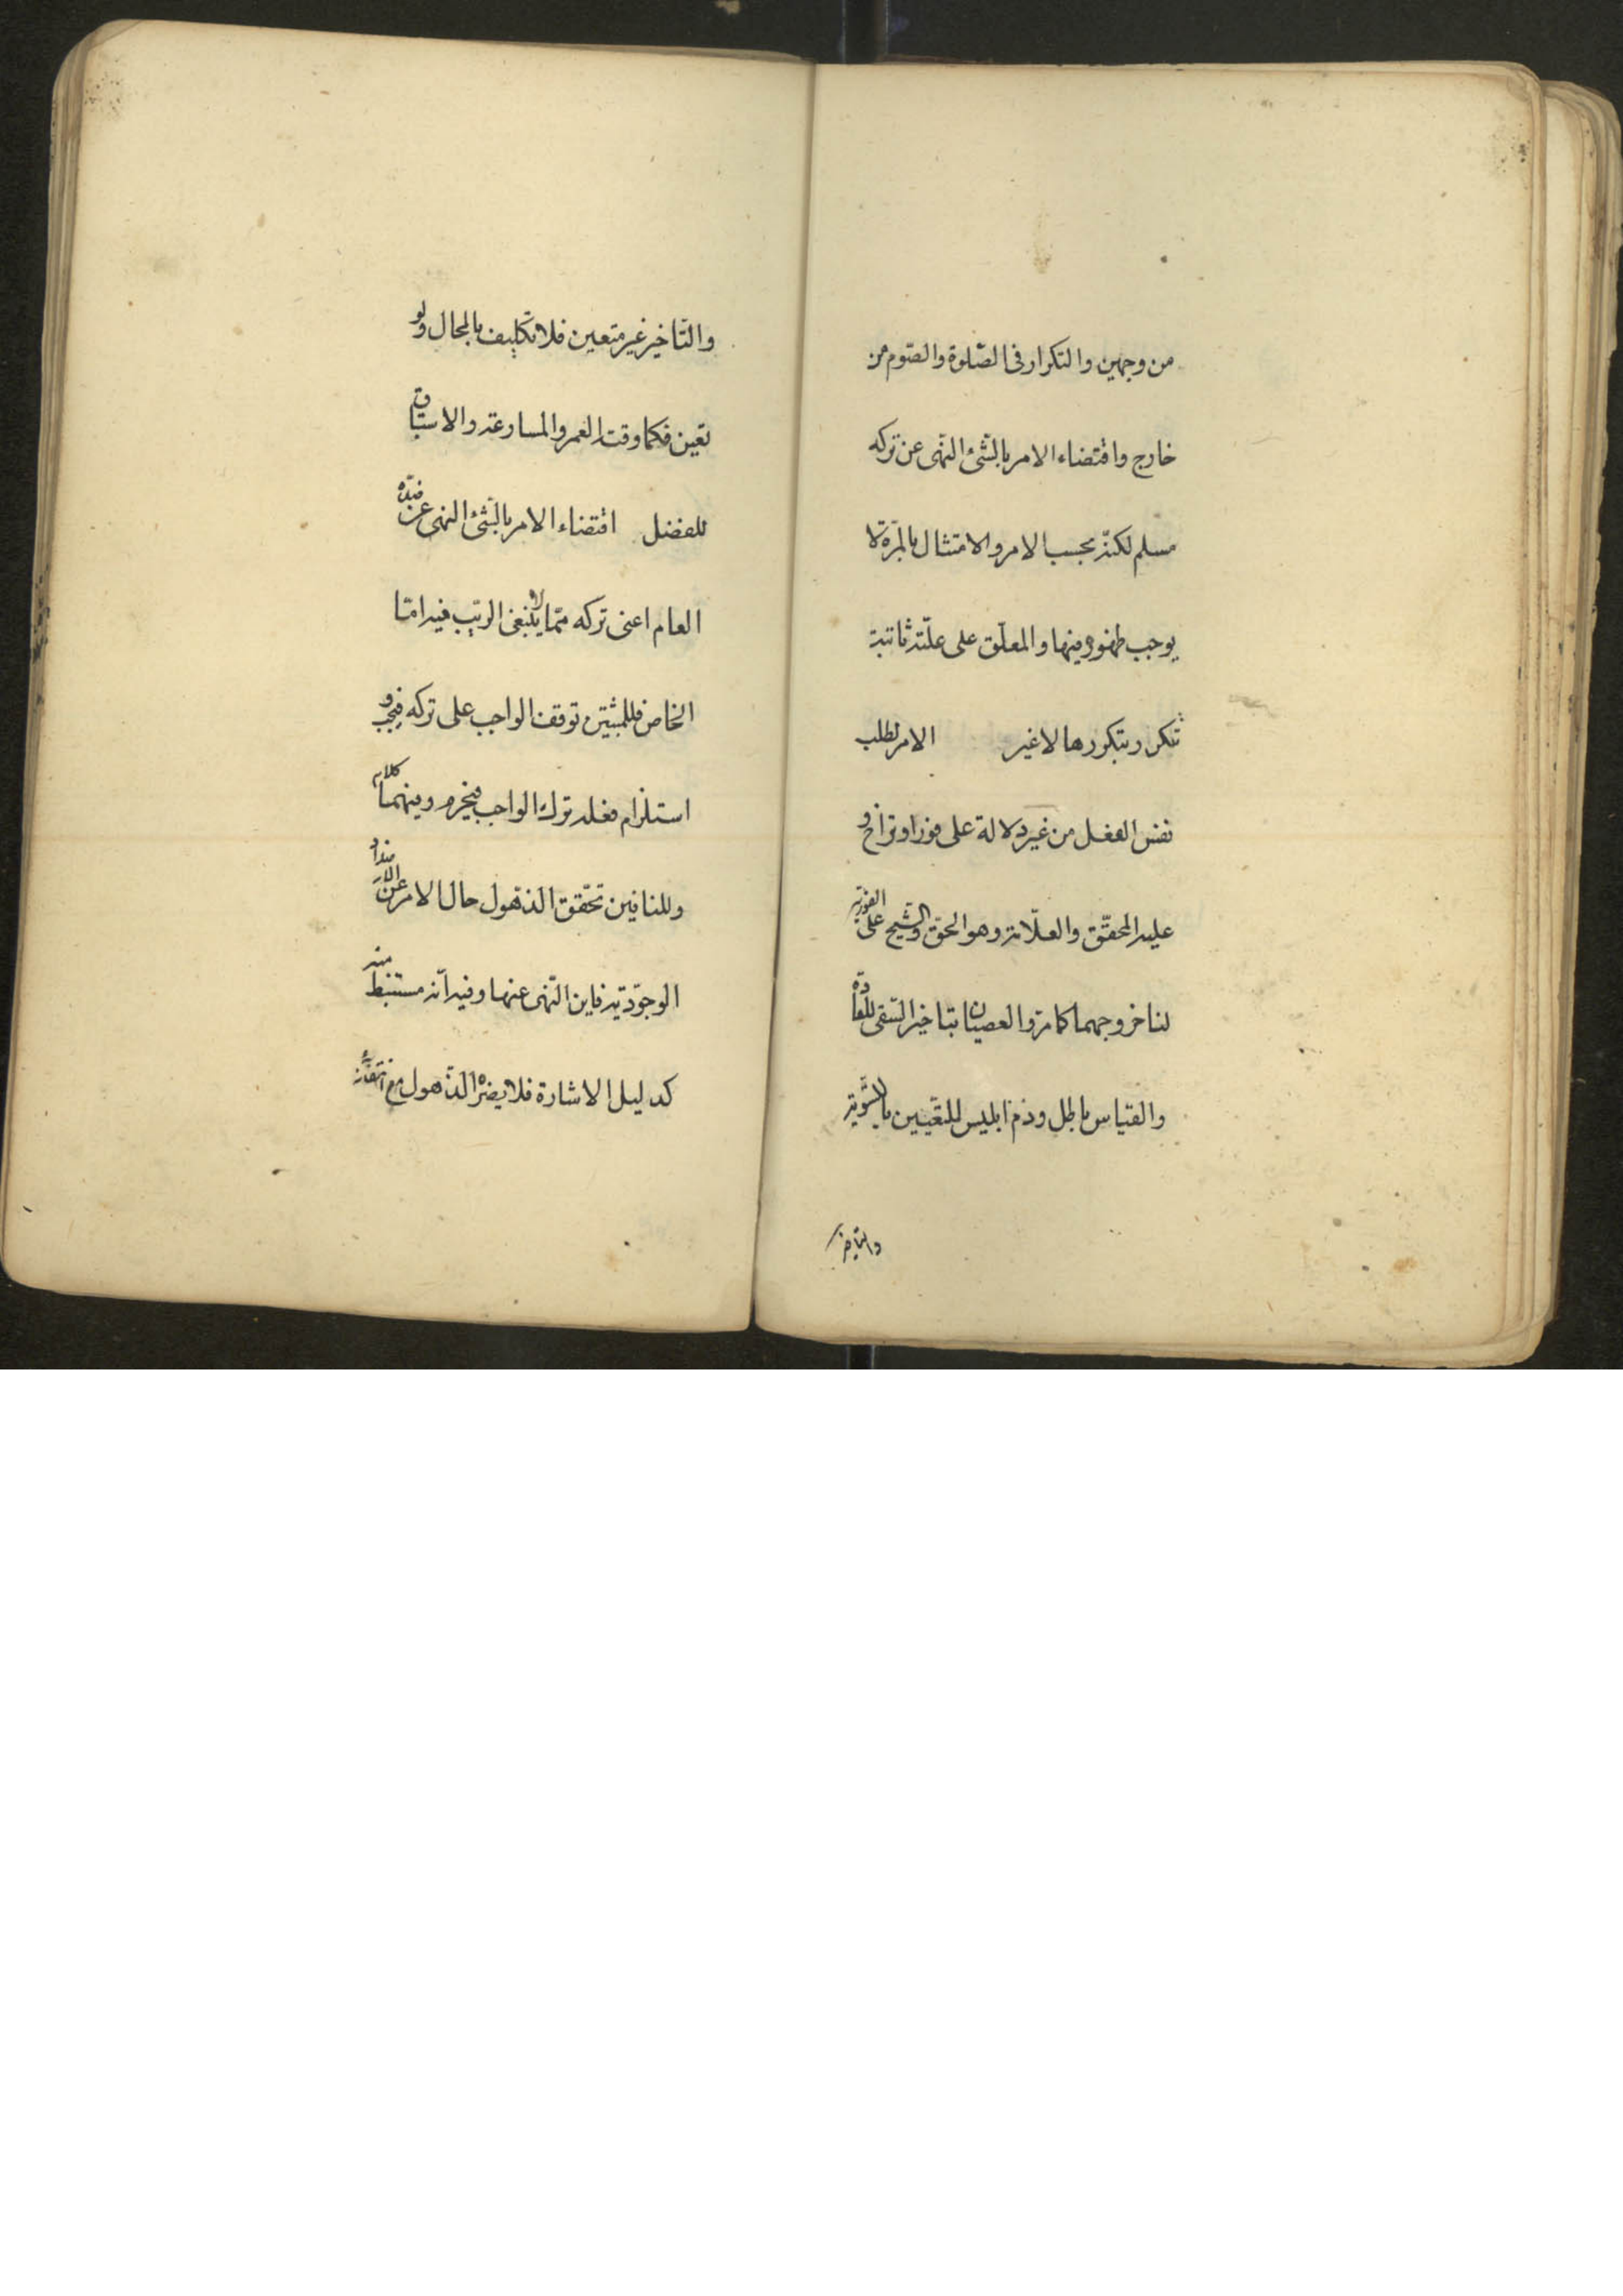 من وجهين والتكرار فى الصّلوة والصّوم من
خارج واقتضاء الامر بالشّئ النّهى عن تركه
مسلم لكنّه بحسب الامر والامتثال بالمرّة لا
يوجب ظهوره فيها والمعلّق على علّة ثابتة
تتكرر بتكررها لا غير الامر لطلب
نفس الفعل من غير دلالة على فور او تراخ و
عليه المحقّق والعلّامة وهو الحق والشّيخ على الفورية
لنا خروجهما كما مرّ والعصيان بتاخير السّقى للعادة
والقياس باطل وذم ابليس للتعّيين بالتّسوية
والتاخير
والتّاخير غير متعين فلا تكليف بالمحال ولو
تعين فكما وقت العمر والمسارعة والاستباق
للفضل اقتضاء الامر بالشّئ النهى عن ضدّه
العام اعنى تركه ممّا لا ينبغى الريب فيه امّا
الخاص فللمثبتين توقف الواجب على تركه فيجب و
استلزام فعله ترك الواجب فيحرم وفيهما كلام
وللنافين تحّقق الذهول حال الامر عن الاضداد
الوجوديّة فاين النّهى عنها وفيه انّه مستنبط منه
كدليل الاشارة فلا يضرّه الذّهول مع انّه